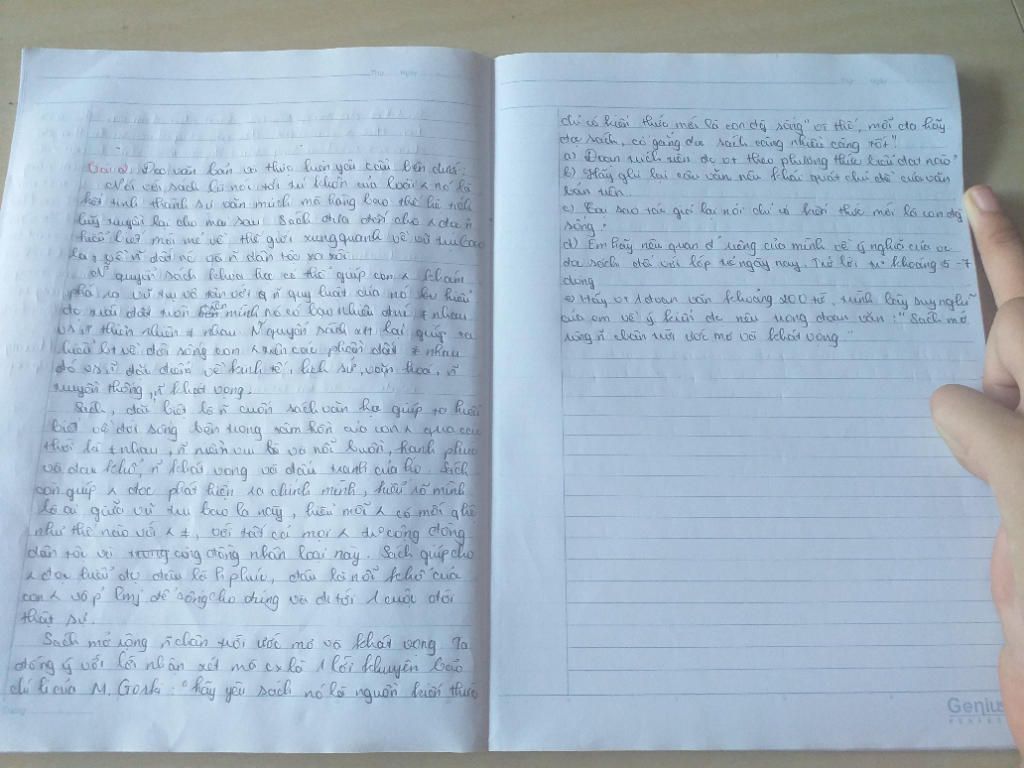 Thứ Ngày
Bài 2: Đọc văn bản và thực hiện yêu cầu bên dưới:
Nói tới sách là nói tới trí khôn của loài ⋏ nó là
kết tinh thành tựu văn minh mà hàng bao thế hệ tích
lũy truyền lại cho mai sau. Sách đưa đến cho ⋏ đọc ñ
hiểu biết mới mẻ về thế giới xung quanh về vũ trụ bao
la, về ñ đất nc và ñ dân tộc xa xôi.
Ñ quyển sách khoa học có thể giúp con ⋏ khám
phá ra vũ trụ vô tận với ñ quy luật của nó
đc trái đất tròn mình nó có bao nhiêu đnc ≠ nhau
thiên nhiên ≠ nhau. Ñ quyển sách xh lại giúp ta
hiểu bt về đời sống con ⋏ trên các phần đất ≠ nhau
đó về kinh tế, lịch sử, văn hoá, ñ
truyền thống, ñ khát vọng.
Sách, đặc biệt là ñ cuốn sách văn học giúp ta hiểu
biết về đời sống bên trong tâm hồn của con ⋏ qua các
thời kì ≠ nhau, ñ niềm vui và nỗi buồn, hạnh phúc
và đau khổ, ñ khát vọng và đấu tranh của họ. Sách
còn giúp ⋏ đọc phát hiện ra chính mình, hiểu rõ mình
là ai giữa vũ trụ bao la này, hiểu mỗi ⋏ có mối qhệ
như thế nào với ⋏ ≠, với tất cả mọi ⋏ cộng đồng
dân tộc và trong cộng đồng nhân loại này. Sách giúp cho
⋏ đọc hiểu đc đâu là h phúc, đâu là nỗi khổ của
con ⋏ và p' lmj để sống cho đúng và đi tới 1 cuộc đời
thật sự.
Sách mở rộng ñ chân trời ước mơ và khát vọng Ta
đồng ý với lời nhận xét mà cx là 1 lời khuyên bảo
chí lí của M. Gorki: "hãy yêu sách nó là nguồn kiến thức
Thứ Ngày
chỉ có kiến thức mới là con đg sống" vì thế, mỗi ta hãy
đọc sách, cố gắng đọc sách càng nhiều càng tốt"
a) Đoạn trích trên đc vt theo phương thức biểu đạt nào?
b) Hãy ghi lại câu văn nêu khái quát chủ đề của văn
bản trên.
c) Tại sao tác giả lại nói chỉ có kiến thức mới là con đg
sống?
d) Em hãy nêu quan đ' riêng của mình về ý nghĩa của vc
đọc sách đối với lớp trẻ ngày nay. Trả lời từ khoảng 5-7
dòng
e) Hãy vt 1 đoạn văn khoảng 200 từ, trình bày suy nghĩ
của em về ý kiến đc nêu trong đoạn văn: "Sách mở
rộng ñ chân trời ước mơ và khát vọng"
Genius